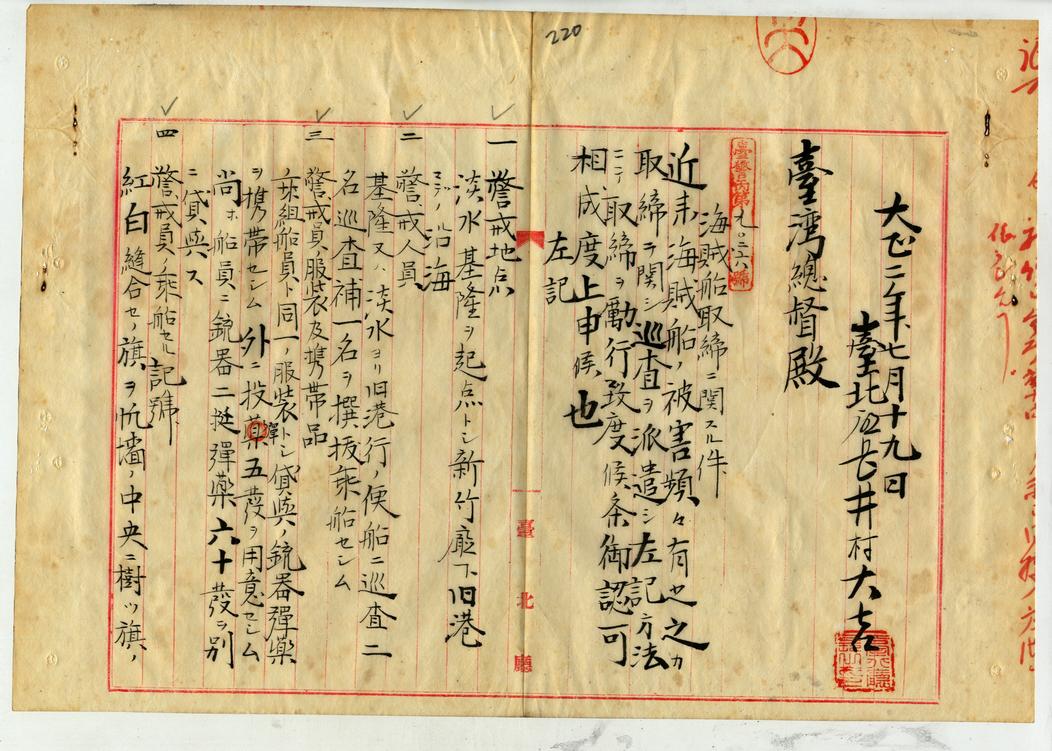 220
大正二年七月十九日
臺北廳長井村大吉
臺灣總督殿
臺警臨第九〇二六號
海賊船取締ニ関スル件
近来海賊船ノ被害頻々有之之カ
取締ヲ関シ巡査ヲ派遣シ左記方法
ニテ取締ヲ勵行致度候条御認可
相成度上申候也
左記
一 警戒地点
淡水基隆ヲ起点トシ新竹廳下旧港
マデノ沿海
二 警戒人員
基隆又ハ淡水ヨリ旧港行ノ便船ニ巡査二
名巡査補一名ヲ撰抜乘船セシム
三 警戒員ノ服装及携帯品
乘組船員ト同一ノ服装トシ貸與ノ銃器彈藥
ヲ携帯セシム外ニ投彈藥五發ヲ用意セシム
尚ホ船員ニ銃器二挺彈藥六十發ヲ別
ニ貸與ス
四 警戒員ノ乘船セル記號
紅白縫合セノ旗ヲ帆檣ノ中央ニ樹ツ旗ノ
臺北廳